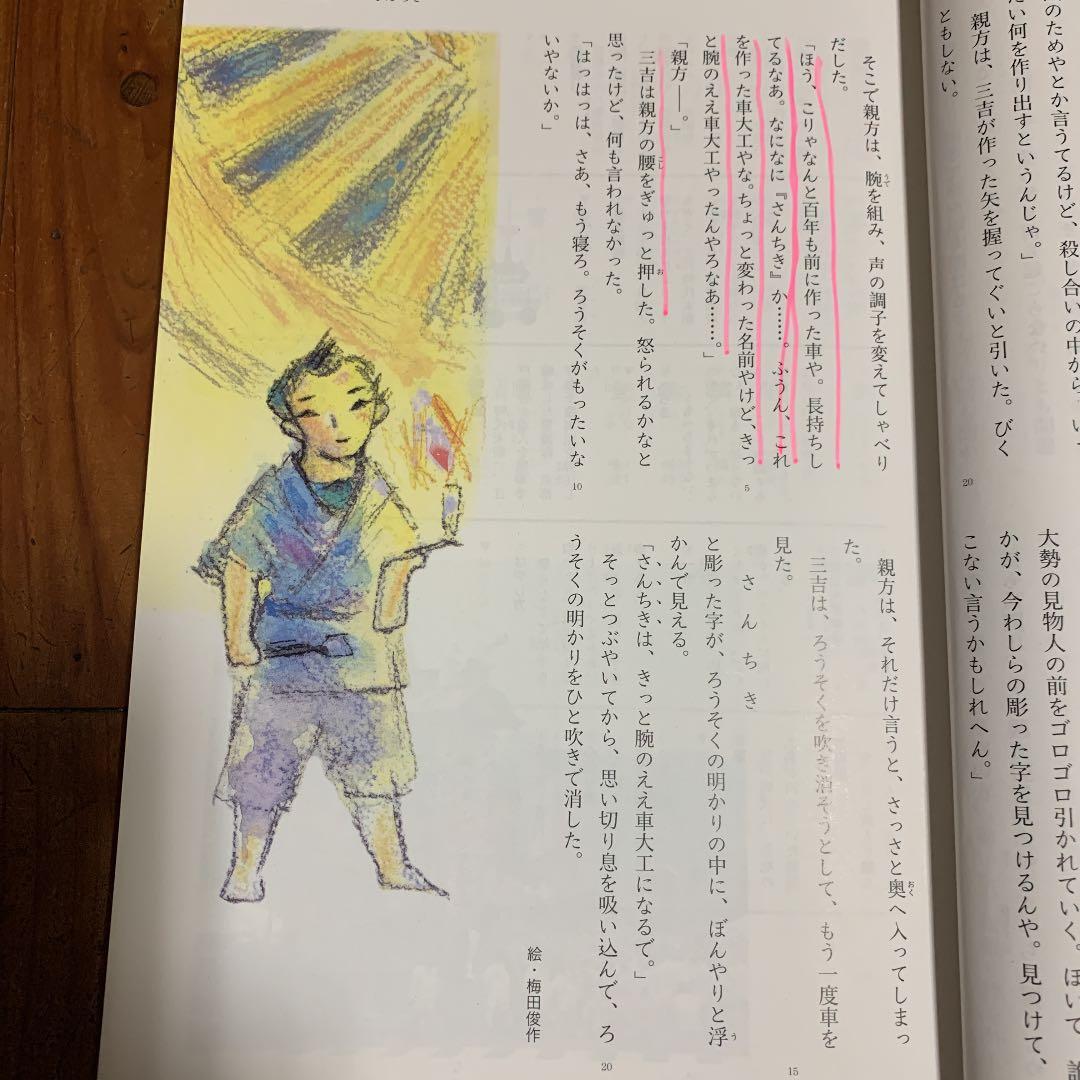 のためやとか言うてるけど、殺し合いの中から
何を作り出すというんじゃ。」
親方は、三吉が作った矢を握ってぐいと引いた。びく
ともしない。
20
大勢の見物人の前をゴロゴロ引かれていく。ほいで
かが、今わしらの彫った字を見つけるんや。見つけて、
こない言うかもしれへん。」
そこで親方は、腕を組み、声の調子を変えてしゃべり
うで
だした。
「ほう、こりゃなんと百年も前に作った車や。長持ちし
てるなあ。なになに『さんちき』か……。ふうん、これ
を作った車大工やな。ちょっと変わった名前やけど、きっ
5
と腕のええ車大工やったんやろなあ……。」
「親方――。」
三吉は親方の腰をぎゅっと押した。怒られるかなと
こし
お
思ったけど、何も言われなかった。
「はっはっは、さあ、もう寝ろ。ろうそくがもったいな
10
いやないか。」
親方は、それだけ言うと、さっさと奥へ入ってしまっ
おく
た。
三吉は、ろうそくを吹き消そうとして、もう一度車を
15
見た。
さんちき
と彫った字が、ろうそくの明かりの中に、ぼんやりと浮
う
かんで見える。
「さんちきは、きっと腕のええ車大工になるで。」
そっとつぶやいてから、思い切り息を吸い込んで、ろ
20
うそくの明かりをひと吹きで消した。
絵・梅田俊作